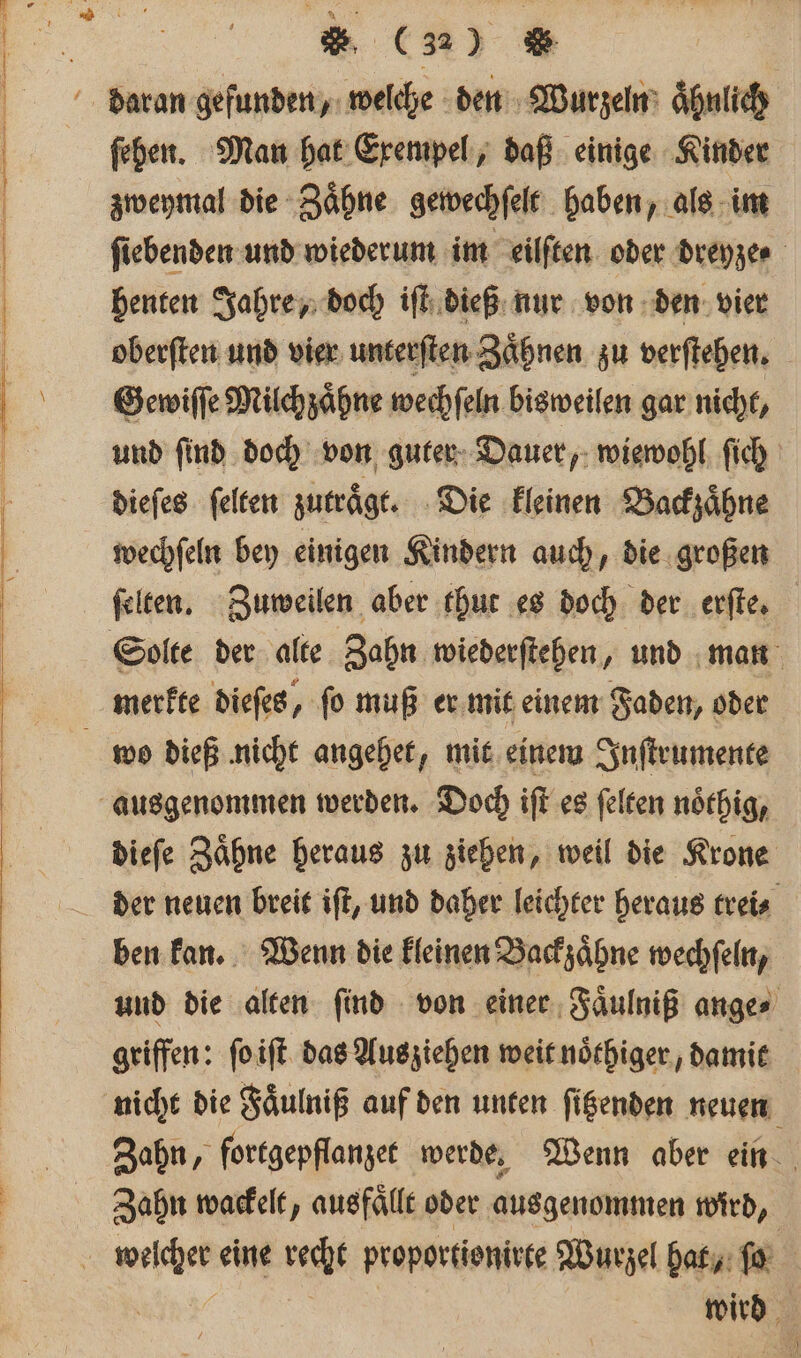 ❁ (32) ❁
daran gefunden, welche den Wurzeln aͤhnlich
ſehen. Man hat Exempel, daß einige Kinder
zweymal die Zaͤhne gewechſelt haben, als im
ſiebenden und wiederum im eilften oder dreyze⸗
henten Jahre, doch iſt dieß nur von den vier
oberſten und vier unterſten Zaͤhnen zu verſtehen.
Gewiſſe Milchzaͤhne wechſeln bisweilen gar nicht,
und ſind doch von guter Dauer, wiewohl ſich
dieſes ſelten zutraͤgt. Die kleinen Backzaͤhne
wechſeln bey einigen Kindern auch, die großen
ſelten. Zuweilen aber thut es doch der erſte.
Solte der alte Zahn wiederſtehen, und man
merkte dieſes, ſo muß er mit einem Faden, oder
wo dieß nicht angehet, mit einem Inſtrumente
ausgenommen werden. Doch iſt es ſelten noͤthig,
dieſe Zaͤhne heraus zu ziehen, weil die Krone
der neuen breit iſt, und daher leichter heraus trei⸗
ben kan. Wenn die kleinen Backzaͤhne wechſeln,
und die alten ſind von einer Faͤulniß ange⸗
griffen: ſo iſt das Ausziehen weit noͤthiger, damit
nicht die Faͤulniß auf den unten ſitzenden neuen
Zahn, fortgepflanzet werde. Wenn aber ein
Zahn wackelt, ausfaͤllt oder ausgenommen wird,
welcher eine recht proportionirte Wurzel hat, ſo
wird